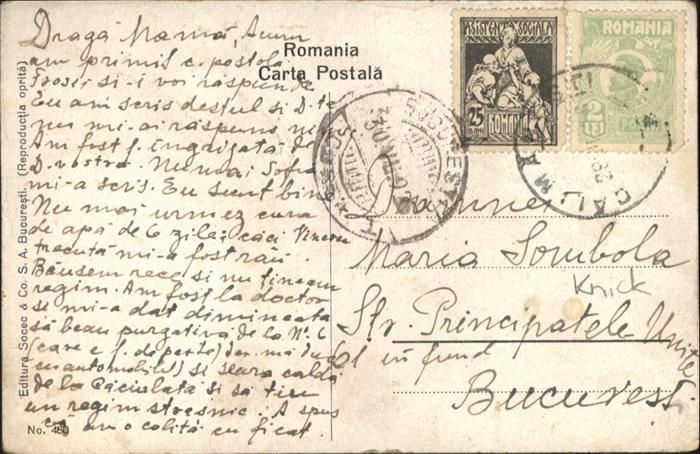 Dragă Mamă, Acum
am primit c. postală
Trosii si-i voi răspunde
Eu am scris destul si D-ta
nu mi-ai răspuns
Am fost f. îngrijată de
D. vostră. Numai Sofia
mi-a scris. Eu sunt bine
Nu mai urmez cura
de apă de 6 zile, căci Vineru
trecută mi-a fost rău
Băusem rece si nu țineam
regim. Am fost la doctor
si mi-a dat dimineata
să beau purgativă de la No. 6
(care e f. departe) dar mă duc
cu automobilul) si seara caldă
de la Căciulata si să tiu
un regim strasnic. A spus
că am o colită cu ficat.
Romania
Carta Postală
ASISTENȚA SOCIALA
25 BANI
ROMANIA
ROMANIA
2 LEI
BUCUREȘTI
30 IUN
CALIMA
Doamnei
Maria Sombola
Knick
Str. Principatele Unite
61 in fund
București
Editura Socec & Co. S. A. București. (Reproducția oprită)
No. 480